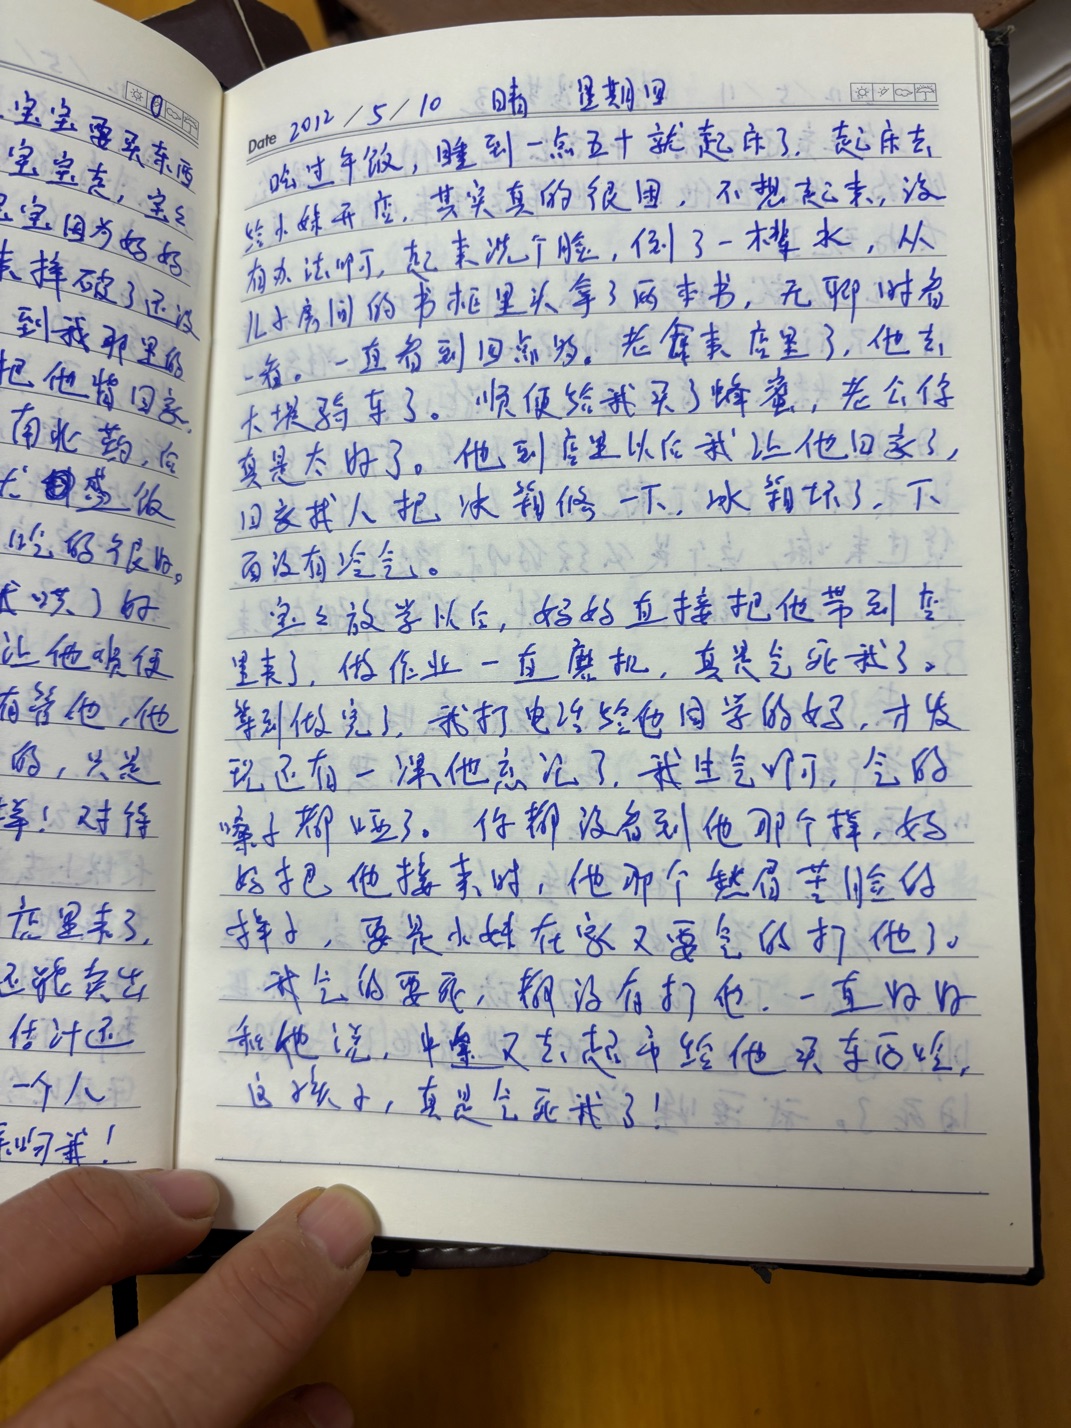 宝宝要买东西
宝宝去，宝宝
宝因为妈妈
摔破了还没
到我那里的
把他带回家，
南北药，后
做
吃的很好。
哄）的
让他顺便
有管他，他
的，只是
样！对待
店里来了，
还能卖出
估计还
一个人
Date 2012/5/10 晴 星期四
吃过午饭，睡到一点五十就起床了，起床去
给小妹开店，其实真的很困，不想起来，没
有办法呀，起来洗个脸，倒了一杯水，从
儿子房间的书柜里头拿了两本书，无聊时看
一看。一直看到四点多。老雒来店里了，他去
大堤骑车了。顺便给我买了蜂蜜，老公你
真是太好了。他到店里以后我让他回家了，
回家找人把冰箱修一下，冰箱坏了，下
面没有冷气。
宝宝放学以后，妈妈直接把他带到店
里来了，做作业一直磨叽，真是气死我了。
等到做完了，我打电话给他同学的妈，才发
现还有一课他忘记了，我生气呀，气的
嗓子都哑了。你都没看到他那个样，妈
妈把他接来时，他那个愁眉苦脸的
样子，要是小妹在家又要气的打他了。
我气的要死，都没有打他，一直好好
和他说，中途又去超市给他买东西吃，
这孩子，真是气死我了！